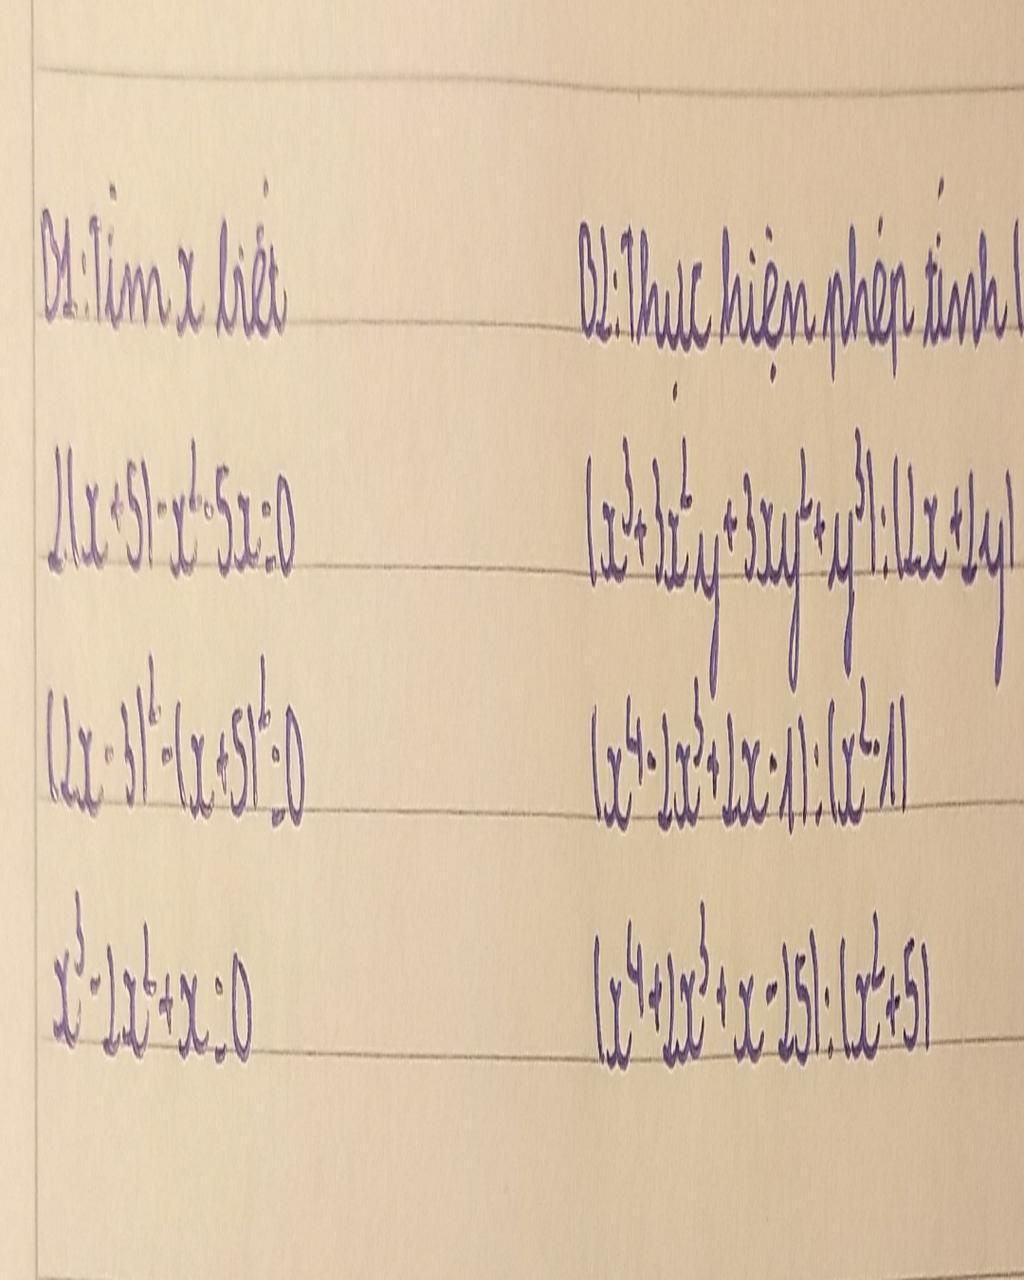 B1: Tìm x biết
2(x + 5) - x² - 5x = 0
(2x - 3)² - (x + 5)² = 0
x³ - 2x² + x = 0
B2: Thực hiện phép tính
(x³ + 3x²y + 3xy² + y³) : (2x + 2y)
(x⁴ - 2x³ + 2x - 1) : (x² - 1)
(x⁴ + 2x³ + x - 25) : (x² + 5)